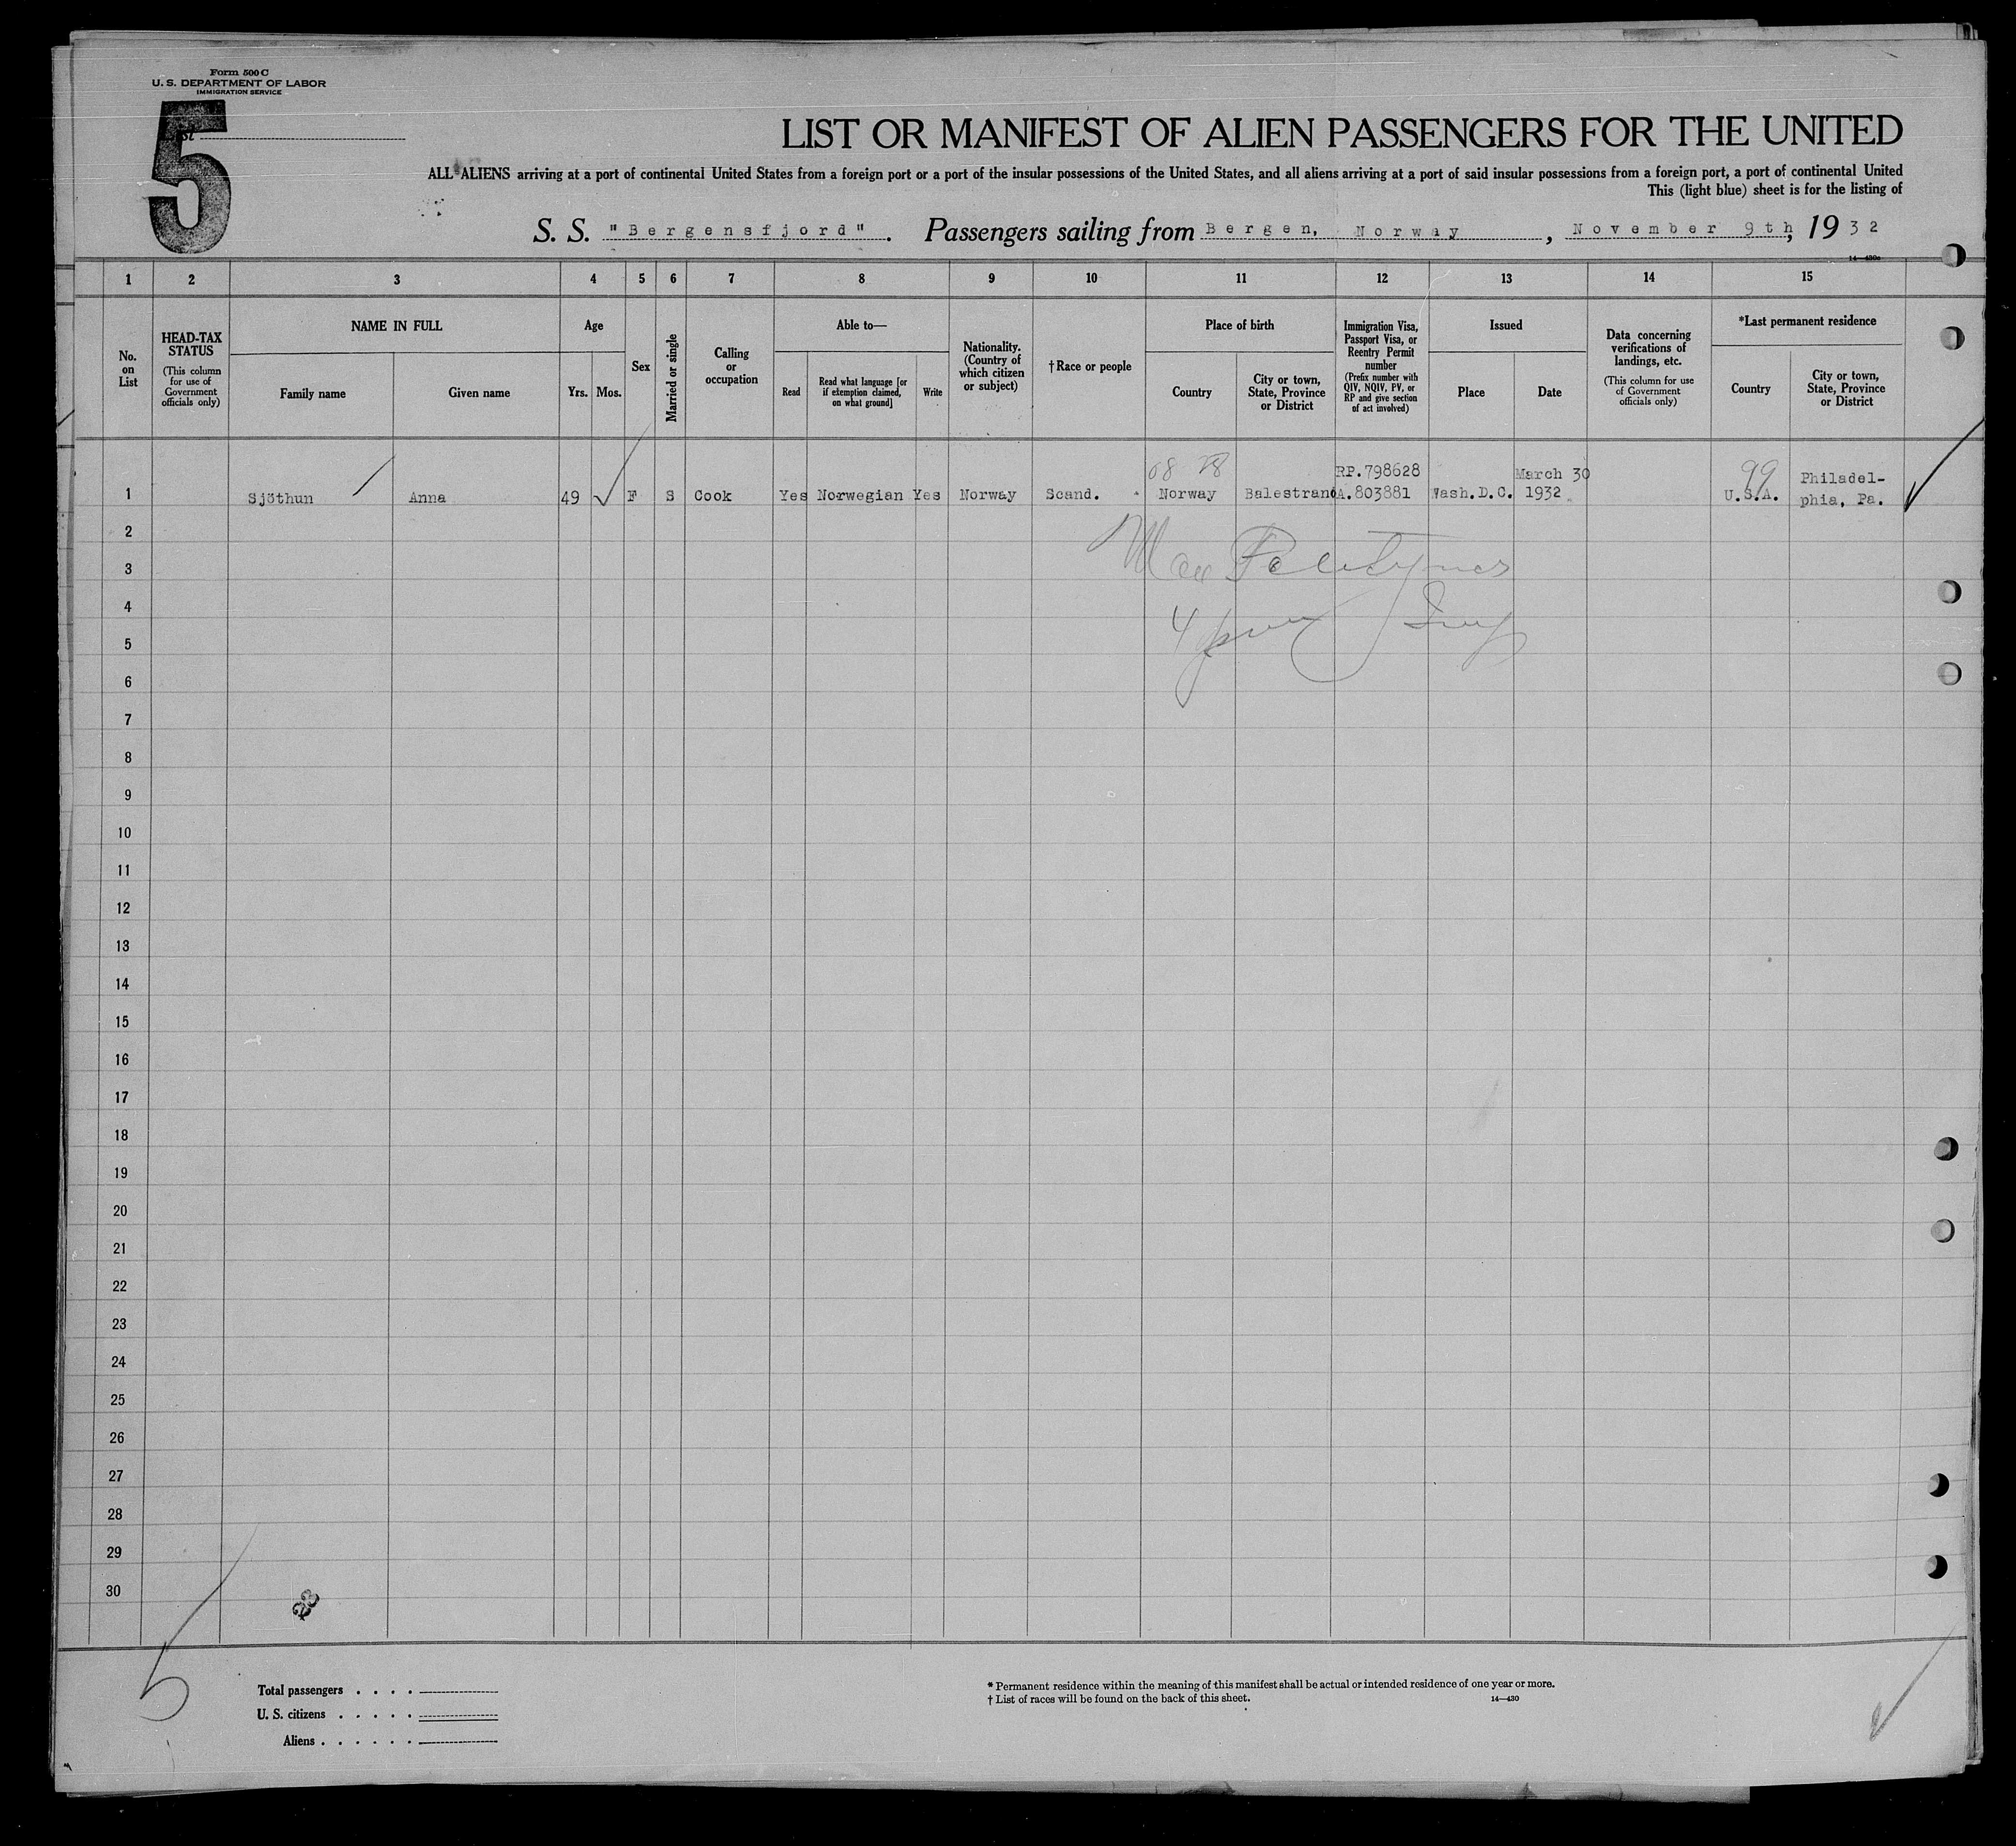 Form 500 C
U. S. DEPARTMENT OF LABOR
IMMIGRATION SERVICE
5
LIST OR MANIFEST OF ALIEN PASSENGERS FOR THE UNITED
ALL ALIENS arriving at a port of continental United States from a foreign port or a port of the insular possessions of the United States, and all aliens arriving at a port of said insular possessions from a foreign port, a port of continental United
This (light blue) sheet is for the listing of
S. S. "Bergensfjord". Passengers sailing from Bergen, Norway, November 9th, 1932
14—430c
1 2 3 4 5 6 7 8 9 10 11 12 13 14 15
No. on List
HEAD-TAX STATUS
(This column for use of Government officials only)
NAME IN FULL
Family name
Given name
Age
Yrs. Mos.
Sex
Married or single
Calling or occupation
Able to—
Read
Read what language [or if exemption claimed, on what ground]
Write
Nationality. (Country of which citizen or subject)
†Race or people
Place of birth
Country
City or town, State, Province or District
Immigration Visa, Passport Visa, or Reentry Permit number
(Prefix number with QIV, NQIV, PV, or RP and give section of act involved)
Issued
Place
Date
Data concerning verifications of landings, etc.
(This column for use of Government officials only)
*Last permanent residence
Country
City or town, State, Province or District
08 28 RP.798628 March 30 99 Philadel-
1 Sjöthun Anna 49 F S Cook Yes Norwegian Yes Norway Scand. Norway Balestrand A.803881 Wash.D.C. 1932 U.S.A. phia, Pa.
2
3
4
5
6
7
8
9
10
11
12
13
14
15
16
17
18
19
20
21
22
23
24
25
26
27
28
29
30
5
Total passengers . . . .
U. S. citizens . . . . .
Aliens . . . . . .
* Permanent residence within the meaning of this manifest shall be actual or intended residence of one year or more.
† List of races will be found on the back of this sheet.
14—430